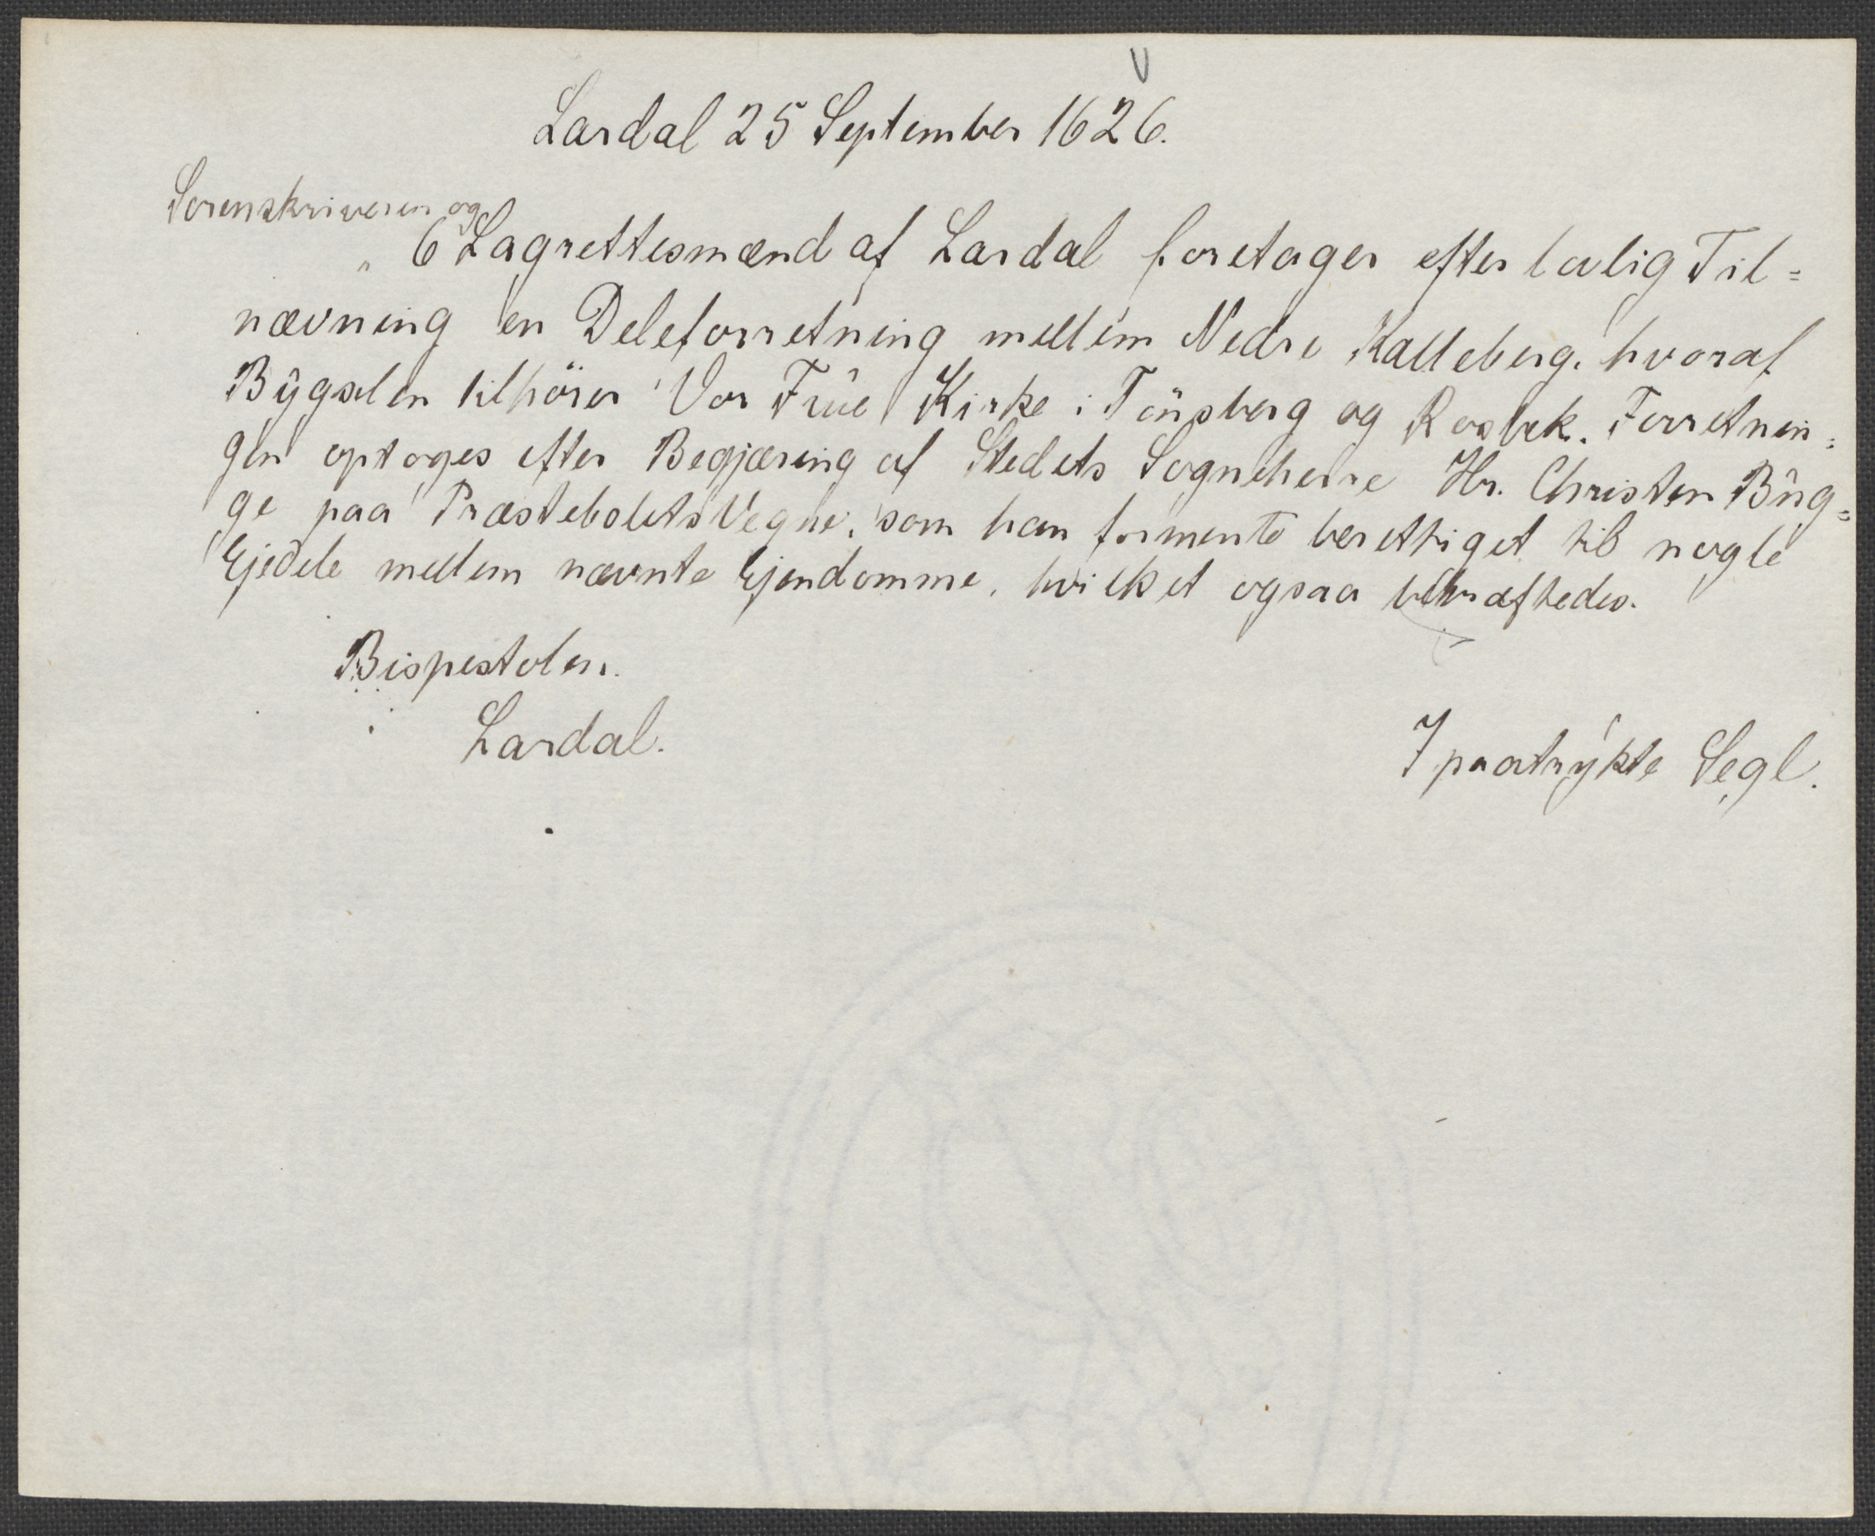 Lardal 25 September 1626.
Sorenskriveren og
6 Lagrettesmænd af Lardal foretager efter lovlig Til=
nævning en Deleforretning mellem Nedre Kalleberg, hvoraf
Bygselen tilhörer Vor Frûe Kirke i Tönsberg og Rosbek. Forretnin=
gen optoges efter Begjæring af Stedets Sogneherre Hr. Christen Bûg=
ge paa Præstebolets Vegne, som han formente berettiget til nogle
Ejedele mellem nævnte Ejendomme, hvilket ogsaa bekræftedes.
Bispestolen.
Lardal.
7 paatrykte Segl.